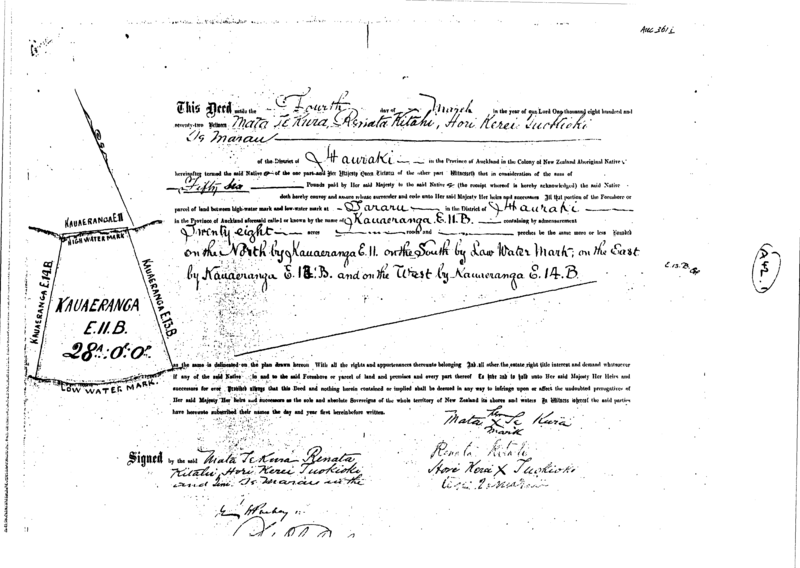 AUC 361 I
This Deed made the Fourth day of March in the year of our Lord One thousand eight hundred and
seventy-two Between Mata Te Kura, Renata Kitahi, Hori Kerei Tuokioki
Te Marau
of the District of Hauraki in the Province of Auckland in the Colony of New Zealand Aboriginal Native
hereinafter termed the said Native of the one part and Her Majesty Queen Victoria of the other part Witnesseth that in consideration of the sum of
Fifty six Pounds paid by Her said Majesty to the said Native (the receipt whereof is hereby acknowledged) the said Native
doth hereby convey and assure release surrender and cede unto Her said Majesty Her Heirs and successors All that portion of the Foreshore or
parcel of land between high-water mark and low-water mark at Tararu in the District of Hauraki
in the Province of Auckland aforesaid called or known by the name of Kauaeranga E.11.B. containing by admeasurement
Twenty eight acres roods and perches be the same more or less Bounded
on the North by Kauaeranga E.11. on the South by Low Water Mark, on the East
by Kauaeranga E. .B. and on the West by Kauaeranga E.14.B.
E.13.B.
A42.
KAUAERANGA E 11
HIGH WATER MARK
KAUAERANGA E.14.B.
KAUAERANGA E.13.B.
KAUAERANGA
E.11.B.
28A:0:0P
LOW WATER MARK.
as the same is delineated on the plan drawn hereon With all the rights and appurtenances thereunto belonging And all other the estate right title interest and demand whatsoever
if any of the said Native in and to the said Foreshore or parcel of land and premises and every part thereof To hold unto Her said Majesty Her Heirs and
successors for ever Provided always that this Deed and nothing herein contained or implied shall be deemed in any way to infringe upon or affect the undoubted prerogatives of
Her said Majesty Her heirs and successors as the sole and absolute Sovereigns of the whole territory of New Zealand its shores and waters In witness whereof the said parties
have hereunto subscribed their names the day and year first hereinbefore written.
Mata X Te Kura
her
mark
Renata Kitahi
Hori Kerei X Tuokioki
Signed by the said Mata Te Kura Renata
Kitahi, Hori Kerei Tuokioki
and Te Marau in the